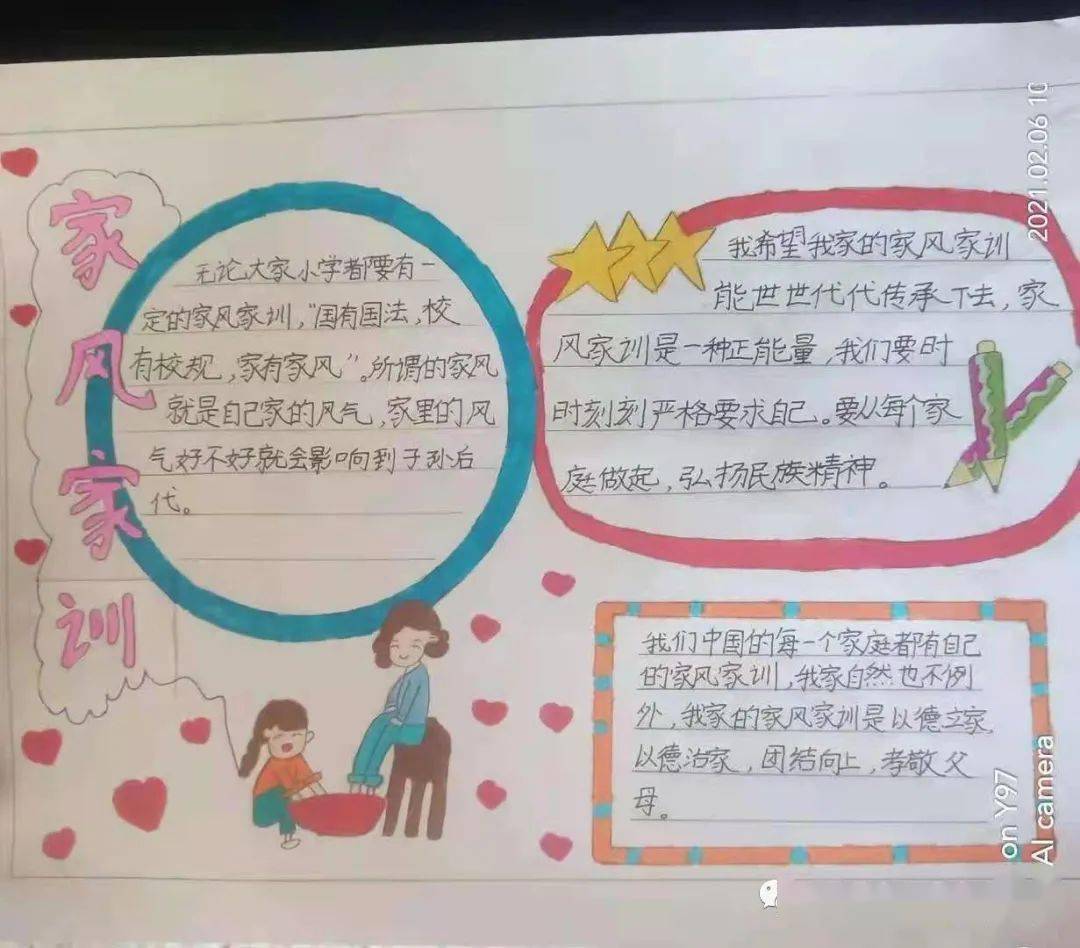 家风家训
无论大家小学都要有一
定的家风家训，“国有国法，校
有校规，家有家风”。所谓的家风
就是自己家的风气，家里的风
气好不好就会影响到子孙后
代。
我希望我家的家风家训
能世世代代传承下去，家
风家训是一种正能量，我们要时
时刻刻严格要求自己。要从每个家
庭做起，弘扬民族精神。
我们中国的每一个家庭都有自己
的家风家训，我家自然也不例
外，我家的家风家训是以德立家，
以德治家，团结向上，孝敬父
母。
2021.02.06 10
on Y97
AI camera